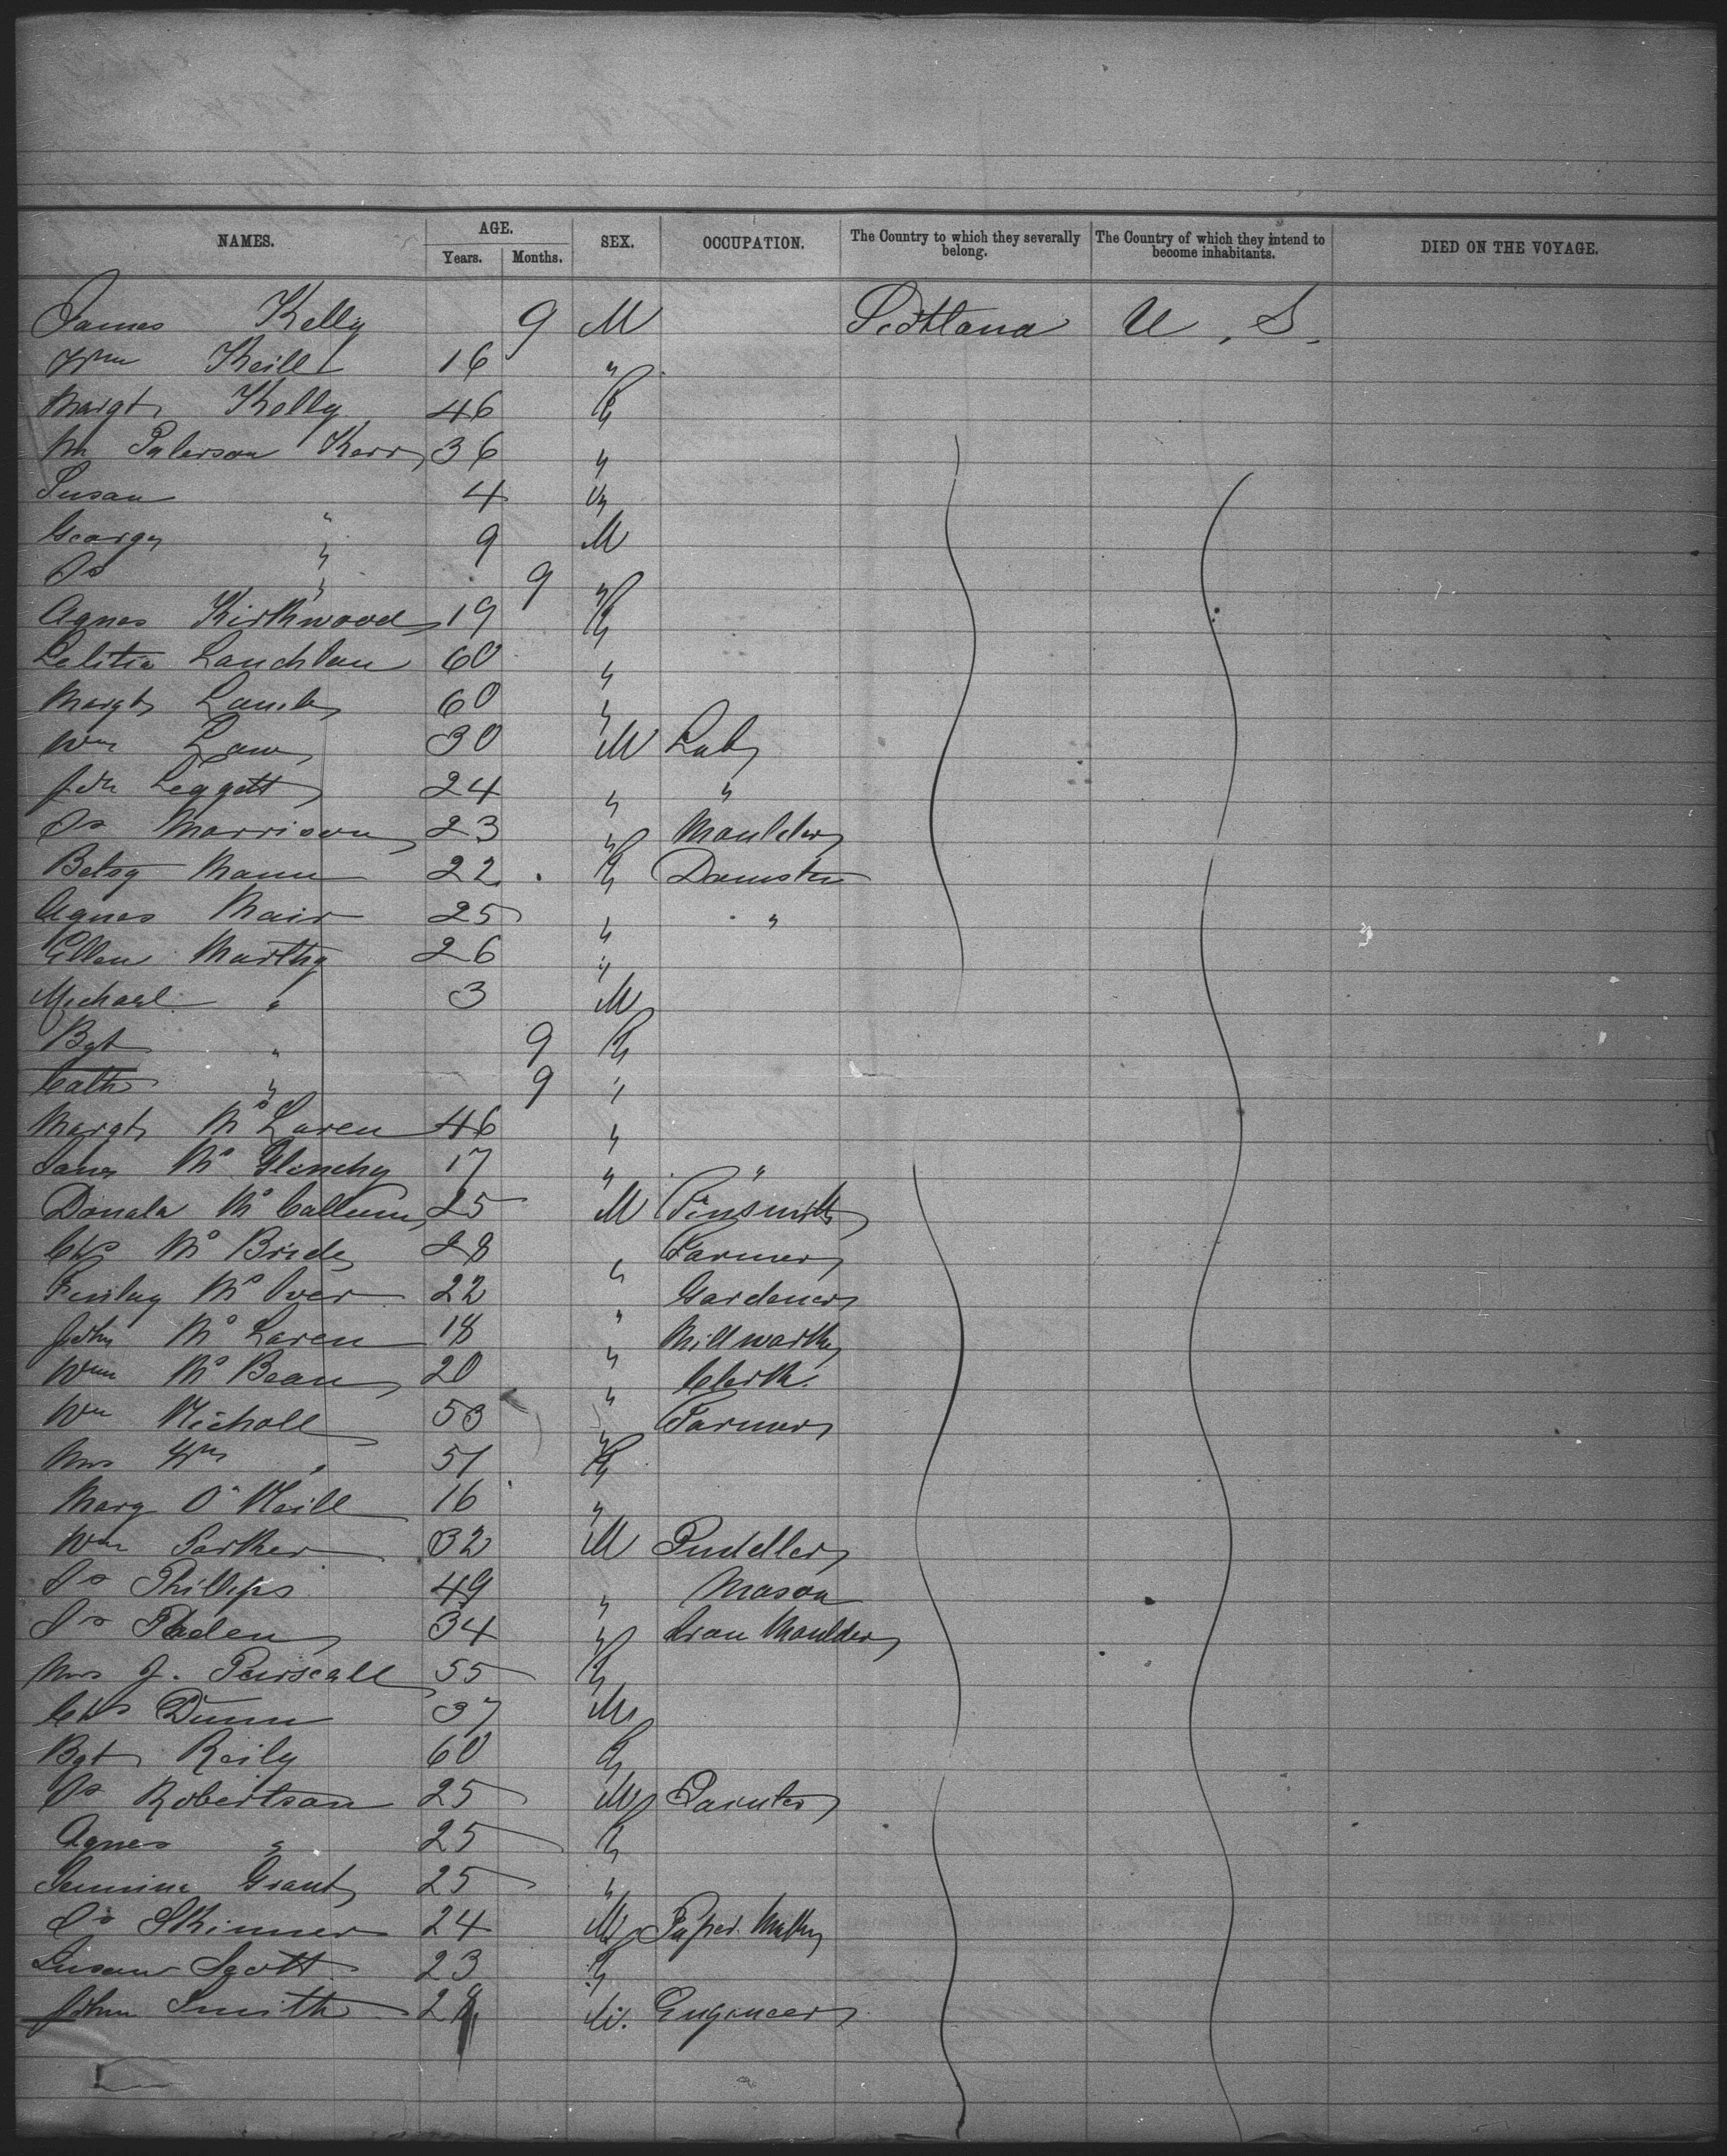 NAMES. AGE. Years. Months. SEX. OCCUPATION. The Country to which they severally belong. The Country of which they intend to become inhabitants. DIED ON THE VOYAGE.
James Kelly 9 M Scotland U.S.
Wm Keill 16 "
Margt Kelly 46 F
M Paterson Kerr 36 "
Susan " 4 "
George " 9 M
Js " 9 "
Agnes Kirkwood 19 F
Letitia Lauchlan 60 "
Margt Lamb 60 "
Wm Law 30 M Lab
Jn Leggett 24 " "
Js Morrison 23 " Moulder
Betsy Mann 22 F Domestic
Agnes Mair 25 " "
Ellen Marthy 26 "
Michael " 3 M
Bgt " 9 F
Cath " 9 "
Margt Mc Laren 46 "
Jane Mc Glinchy 17 " "
Donald Mc Callum 25 M Tinsmith
Chs Mc Bride 28 " Farmer
Finlay Mc Iver 22 " Gardener
John Mc Laren 18 " Millworker
Wm Mc Bean 20 " Clerk
Wm Nicholl 53 " Farmer
Mrs Wm " 51 F
Mary O'Neill 16 "
Wm Parker 32 M Puddler
Js Phillips 49 " Mason
Js Paden 34 " Iron Moulder
Mrs J. Purscall 55 F
Chs Dunn 37 M
Bgt Reily 60 F
Js Robertson 25 M Painter
Agnes " 25 F
Jemima Grant 25 "
Js Skinner 24 M Paper
Susan Scott 23 F
John Smith M. Engineer